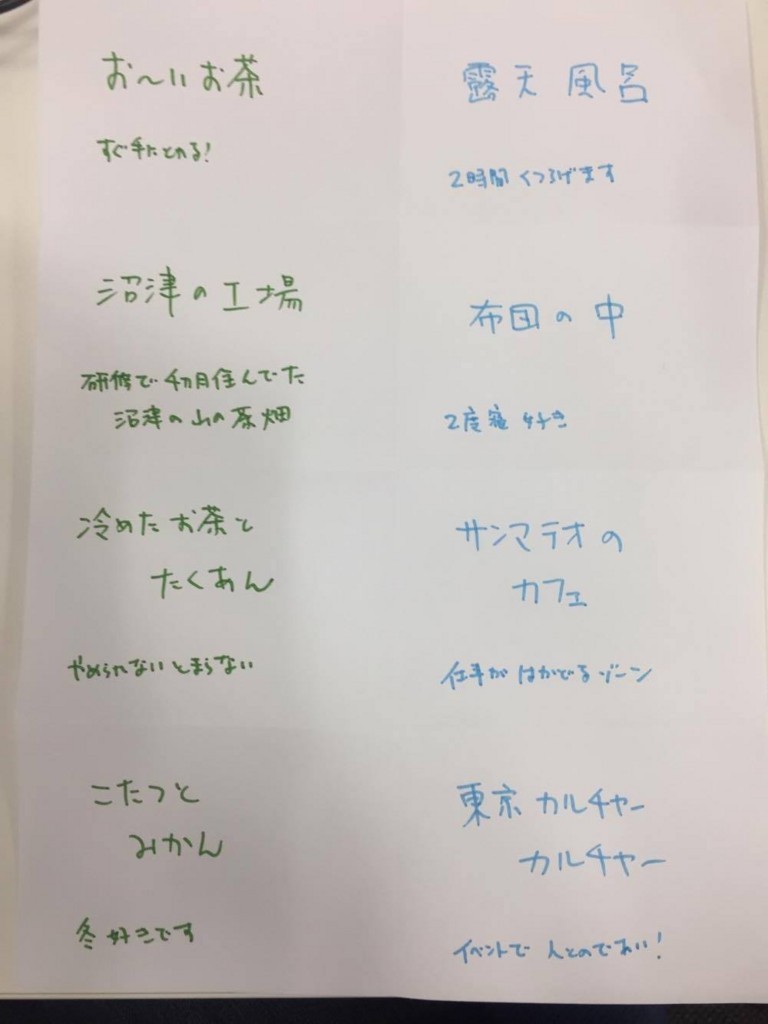 お〜いお茶
すぐ手にとれる!
沼津の工場
研修で4ヵ月住んでた
沼津の山の茶畑
冷めたお茶と
たくあん
やめられないとまらない
こたつと
みかん
冬好きです
露天風呂
2時間くつろげます
布団の中
2度寝好き
サンマテオの
カフェ
仕事がはかどるゾーン
東京カルチャー
カルチャー
イベントで人とのであい!